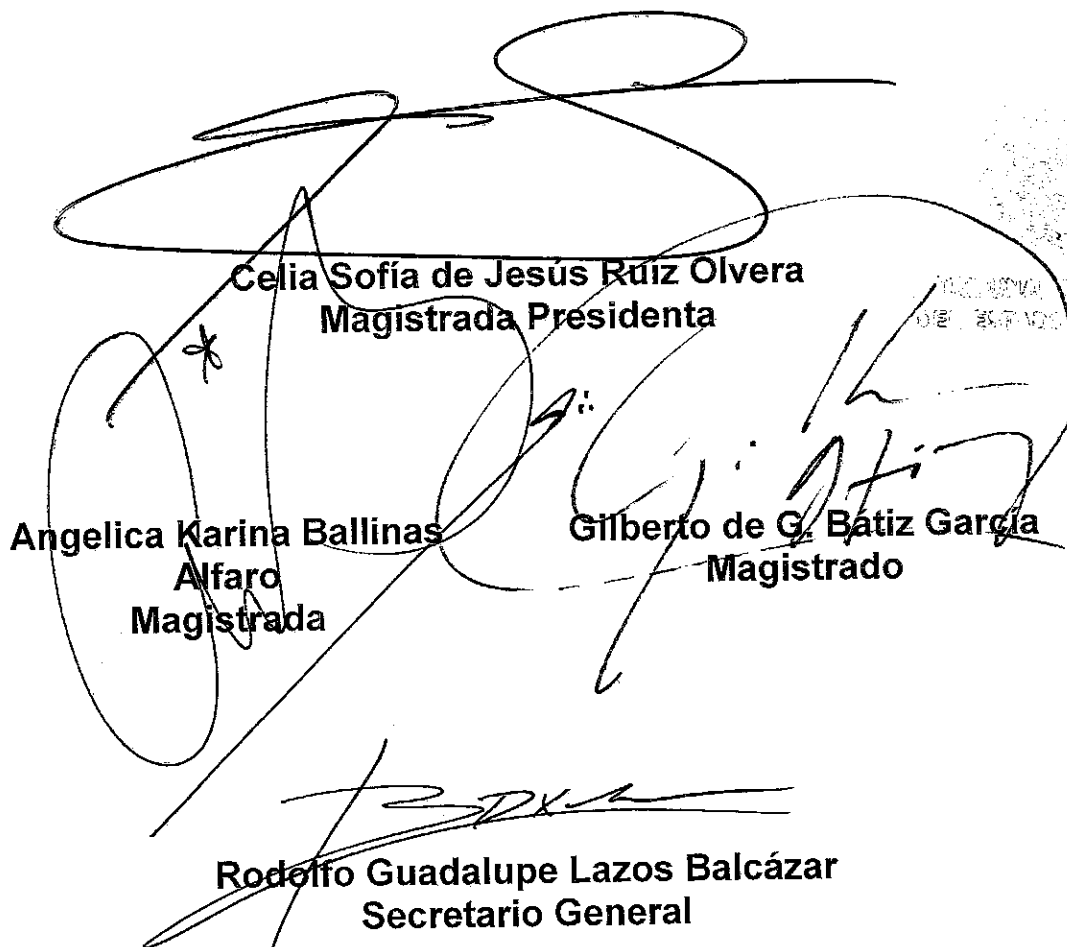 Celia Sofía de Jesús Ruiz Olvera
Magistrada Presidenta
Angelica Karina Ballinas
Alfaro
Magistrada
Gilberto de G. Bátiz García
Magistrado
Rodolfo Guadalupe Lazos Balcázar
Secretario General